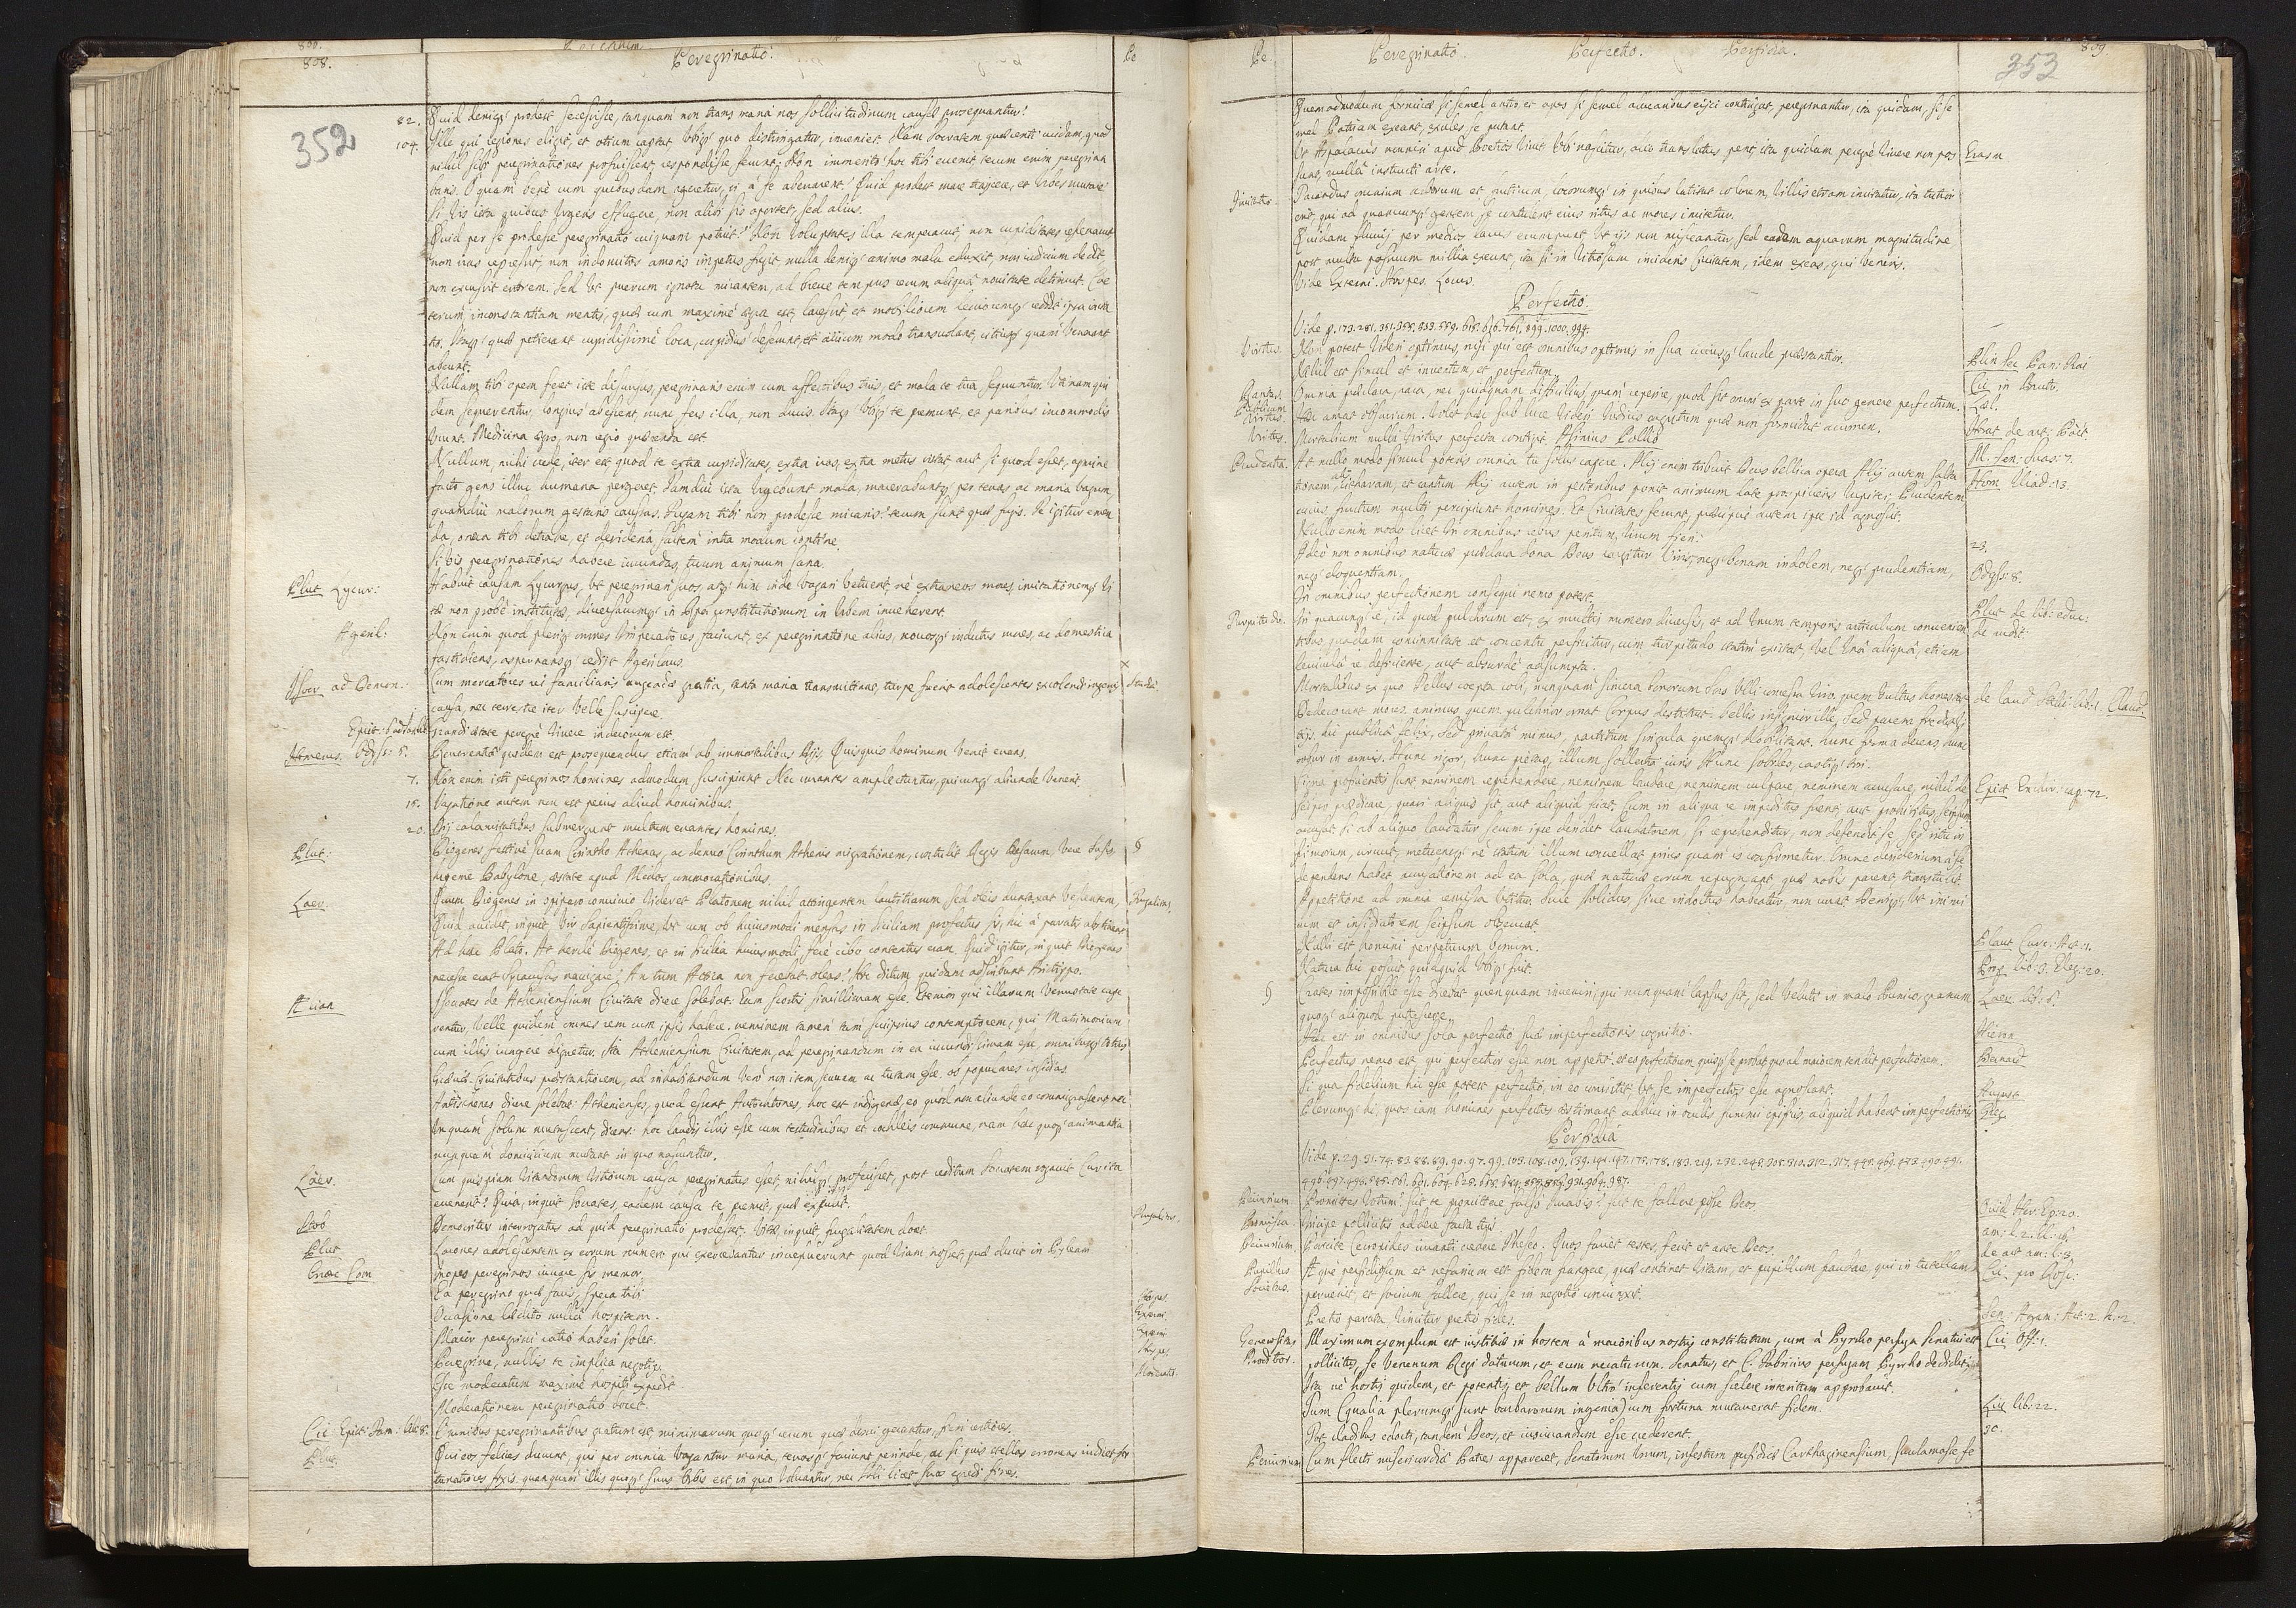 808.
Peregrinatio.
Pe
352
82. Quid denique prodest secessisse, tanquam non trans maria nos sollicitudinum causæ prosequantur?
104. Ille qui regiones eligit, et otium captat Ubique quo distringatur, inveniet. Nam Socratem querenti cuidam, quod
nihil sibi peregrinationes profuissent respondisse ferunt: Non immerito hoc tibi evenit tecum enim peregrina
baris. O quam bene cum quibusdam ageretur, si à se aberrarent! Quid prodest mare traijcere, et Urbes mutare?
Si Vis ista quibus Urgeris effugere, non alibi sis oportet, sed alius.
Quid per se prodesse peregrinatio cuiquam potuit? Non Voluptates illa temperavit, non cupiditates refrenavit
non iras repressit, non indomitos amoris impetus fregit, nulla denique animo mala eduxit, non iudicium dedit
non excussit errorem. Sed Ut puerum ignota mirantem, ad breve tempus rerum aliqua novitate detinuit. Cæ
terum inconstantiam mentis, quæ cum maxime ægra est, lacessit et mobiliorem levioremque reddit ipsa iacta
tio. Itaque quæ petierant cupidissime loca, cupidius deserunt, et avium modo transvolant, citiusque quam Venerant
abeunt.
Nullam tibi opem feret iste discursus, peregrinaris enim cum affectibus tuis, et mala te tua sequuntur. Utinam qui
dem sequerentur, longius abessent, nunc fers illa, non ducis. Itaque Ubique te premunt, et paribus incommodis
Urunt. Medicina ægro, non regio quærenda est.
Nullum, mihi crede, iter est, quod te extra cupiditates, extra iras, extra metus sistat aut si quod esset, agmine
facto gens illuc humana pergeret. Tamdiu ista Urgebunt mala, macerabuntque per terras ac maria vagum
quamdiu malorum gestaris causas. Fugam tibi non prodesse miraris? tecum sunt quæ fugis. Te igitur emen
da, onera tibi detrahe, et desideria saltem intra modum contine.
Si Vis peregrinationes habere iucundas, tuum animum sana.
Plut. Lycur: Habuit causam Lycurgus, Ut peregrinari suos, atque hinc inde vagari vetuerit, ne extraneos mores, imitationemque Vi
tæ non probe institutæ, diversarumque in Rep: constitutionum in Urbem inveherent.
Agesil: Non enim quod plerique omnes Imperatores, faciunt, ex peregrinatione alius, novosque indutus mores, ac domestica
fastidiens, aspernansque redijt Agesilaus.
Isocr. ad Demon.: Cum mercatores rei familiaris augendæ gratia, tanta maria transmittant, turpe fuerit adolescentes excolendi ingenij
causa, nec terrestre iter Velle suscipere.
Grandi ætate peregre Vivere indecorum est.
Homerus. Odyss: 5. Reverentia quidem est prosequendus etiam ab immortalibus Dijs, Quisquis hominum Venit errans.
7. Non enim isti peregrinos homines admodum suscipiunt Nec amantes amplectuntur, quicunque aliunde Venerit.
15. Vagatione autem non est peius aliud hominibus.
20. Dij calamitatibus submergunt multum errantes homines.
Plut: Diogenes festivè suam Corintho Athenas, ac denuo Corinthum Athenis migrationem, contulit Regis Persarum, Vere Susis
hyeme Babylone, æstate apud Medos commorationibus. §
Laer. Quum Diogenes in opiparo convivio videret Platonem nihil attingentem lautitiarum sed oleis duntaxat Vescentem, Frugalitas.
Quid accidit, inquit, Vir sapientissime, Ut cum ob huiusmodi mensas in Siciliam profectus sis, hic à paratis abstineas?
Ad hæc Plato. At hercle Diogenes, et in Sicilia huiusmodi ferè cibo contentus eram. Quid igitur, inquit Diogenes
necesse erat Syracusas navigare? An tum Attica non ferebat oleas? Hoc dictum quidam adscribunt Aristippo.
Ælian Isocrates de Atheniensium Civitate dicere solebat: Eam scortis simillimam esse. Etenim qui illarum Venustate cape
rentur, Velle quidem omnes rem cum ipsis habere, neminem tamen tam suiipsius contemptorem, qui Matrimonium
cum illis iungere dignetur. Ita Atheniensium Civitatem, ad peregrinandum in ea iucundissimam esse, omnibusque totius
Græciæ civitatibus præstantiorem, ad inhabitandum Verò non item, securam ac tutam esse, ob populares insidias.
Antisthenes dicere solebat: Athenienses, quod essent Autochtones, hoc est indigenæ, eo quod non aliunde eo commigrassent nec
Unquam solum mutassent, dicens: hoc laudis illis esse cum testudinibus et cochleis commune, nam hæc quoque animantia
nusquam domicilium mutant in quo nascuntur.
Laer. Cum quispiam Vitandorum Vitiorum causa peregrinatus esset, nihilque profecisset, post reditum Socratem rogavit Cur ita
evenerit? Quia, inquit Socrates, eadem causa te premit, quæ expulit.
Stob Democritus interrogatus ad quid peregrinatio prodesset. Vitæ, inquit, frugalitatem docet. Frugalitas.
Plut
Inopes peregrinos iuvare sis memor.
Ea peregrino quæ facis, spera tibi
Occasione lædito nulla hospitem. Hospes
Maior peregrini ratio haberi solet.
Peregrine, nullis te implica negotijs. Hospes
Esse moderatum maxime hospiti expedit
Moderationem peregrinatio docet.
Cic Epist: Fam: lib: 8. Omnibus peregrinantibus gratum est, minimarum quoque rerum quæ domi gerantur, fieri certiores.
Plut. Qui eos felices ducunt, qui per omnia Vagantur maria, terasque faciunt perinde, ac si quis stellas erroneas iudicet for
tunatiores fixis, quanquam illis quoque suus Orbis est, in quo Volvantur, nec Soli licet suos egredi fines.
Pe.
Peregrinatio
Perfectio.
Perfidia.
353
809
Quemadmodum formicæ si semel antro, et apes si semel alvearibus eijci contingat, peregrinantur, ita quidam, si se
mel Patriam exeant, exules se putant.
Ut Aspalacus nonnisi apud Boetios Vivit Ubi nascitur, alio translatus perit, ita quidam peregre Vivere non pos Erasm
sunt, nulla instructi arte.
Imitatio.
erit, qui ad quamcunque gentem se contulerit eius ritus ac mores imitetur.
Quidam fluvij per medios lacus erumpunt Ut ijs non misceantur, sed eadem aquarum magnitudine
post multa passuum millia exeunt, ita si in Vitiosam incideris Civitatem, idem exeas, qui Veneris.
Vide Externi. Hospes. Locus.
Perfectio.
Vide p. 173. 281. 351. 358.
Virtus. Non potest Videri optimus, nisi qui est omnibus optimis in sua cuiusque laude præstantior.
Nihil est simul et inventum, et perfectum. Cic in Bruto.
Raritas. Omnia præclara, rara, nec quidquam difficilius, quam reperire, quod sit omni ex parte in suo genere perfectum. Læl.
Hæc amat obscurum. Volet hæc sub luce Videri Iudicis argutum quæ non formidat acumen. Horat de art: Poët.
Virtus. Mortalium nulli Virtus perfecta contigit. Asinius Pollio M. Sen: Suas: 7.
Prudentia. At nullo modo simul poteris omnia tu solus capere. Alij enim tribuit Deus bellica opera Alij autem salta Hom Iliad: 13.
tionem, alij citharam, et cantum Alij autem in pectoribus ponit animum late prospiciens Iupiter Prudentem
cuius fructum multi percipiunt homines. Et Civitates servat, præcipue autem ipse id agnoscit.
Nullo enim modo licet In omnibus rebus peritum, Virum fieri. 23.
Adeò non omnibus naturæ præclara dona Deus largitur Viris, neque bonam indolem, neque prudentiam, Odyss: 8.
neque eloquentiam.
In omnibus perfectionem consequi nemo potest. Plut de lib: educ:
Turpitudo. In quacunque re, id quod pulchrum est, ex multis numero diversis, et ad Unum temporis articulum convenien de audit.
tibus, quadam concinnitate et concentu perficitur, cum turpitudo statim existat, Vel Una aliqua, etiam
levicula re deficiente, aut absurde adsumpta.
Mortalibus ex quo Tellus coepta coli, nunquam sincera bonorum Sors Ulli concessa Viro, quem Vultus honestat de laud Stil: lib: 1. Claud.
Dedecorant mores, animus, quem pulchrior ornat Corpus destituit. Bellis insignior ille, Sed pacem foedat
Vitijs. hic publica felix, Sed privata minus, partitum singula quemque Nobilitant. hunc forma decens, hunc
robur in armis, Hunc rigor, hunc pietas, illum sollertia iuris Hunc soboles, castique tori.
Signa proficientis sunt neminem reprehendere, neminem laudare, neminem culpare, neminem accusare, nihil de Epict Enchir: cap: 72.
seipso prædicare, quasi aliquis sit, aut aliquid sciat. Cum in aliqua re impeditus fuerit, aut prohibitus, seipsum
accusat, Si ab aliquo laudatur secum ipse deridet laudatorem, si reprehenditur, non defendit se,
Appetitione ad omnia remissa Utitur. Sive stolidus, sive indoctus habeatur, non curat Denique, Ut inimi
cum et insidiatorem seipsum observat.
Nulli est homini perpetuum bonum. Plaut Curc: Act: 1.
Natura hic posuit quidquid Ubique fuit. Prop lib: 3. Eleg: 20.
§ Crates impossibile esse dicebat quenquam inveniri, qui nunquam lapsus sit, sed Veluti in malo Punico, granum Laer lib: 6.
quoque aliquod putre esse.
Hæc est in omnibus sola perfectio suæ imperfectionis cognitio. Hieron
Perfectus nemo est, qui perfectior esse non appetit. Bernard
Si qua fidelium hic esse potest perfectio, in eo consistit, Ut se imperfectos esse agnoscant. August
Plerumque hi, quos iam homines perfectos æstimant adhuc in oculis summi opificis, aliquid habent imperfectionis Greg.
Perfidia
Vide p. 29. 31. 74. 83. 88. 89. 90. 97. 99. 103. 108. 109. 139. 141. 147. 175. 178. 183. 219. 232. 248. 308. 310. 312. 317.
Periurium.
Promissa. Incipe pollicitis addere facta tuis. am: l: 2. El: 16.
Periurium. Parcite Cecropides iuranti credere Theseo. Quos faciet testes, fecit et ante Deos. de art am: l: 3.
Pupillus Atque perfidiosum et nefarium est fidem frangere, quæ continet Vitam, et pupillum fraudare, qui in tutellam Cic pro Rosc:
Societas. pervenit, et socium fallere, qui se in negotio coniunxit.
Pretio parata, Vincitur pretio fides. Sen: Agam: Act: 2.
Generositas Maximum exemplum est iustitiæ in hostem à maioribus nostris constitutum, cum à Pyrrho perfuga Senatui est Cic Off: 1.
Proditor. pollicitus, se Venenum Regi daturum, et eum necaturum. Senatus, et C. Fabricius perfugam Pyrrho dedidit,
Ita nè hostis quidem, et potentis, et bellum Ultro inferentis cum scelere interitum approbavit.
Tum (qualia plerumque sunt barbarorum ingenia) cum fortuna mutaverat fidem. Liv lib: 22.
Tot cladibus edocti, tandem Deos, et iusiurandum esse crederent. 30.
Periurium Cum flecti misericordia Patres appareret, Senatorum Unum, infestum perfidiæ Carthaginensium, succlamasse fe